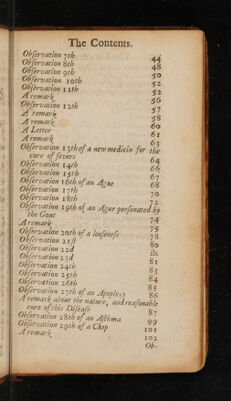 The Contents.
Observation 7th 44
Observation 8th 48
Observation 9th 50
Observation 10th 52
Observation 11th 52
A remark 56
Observation 12th 57
A remark 58
A remark 60
A Letter 61
A remark 63
Observation 13th of a new medicin for the
cure of fevers 64
Observation 14th 66
Observation 15th 67
Observation 16th of an Ague 68
Observation 17th 70
Observation 18th 72
Observation 19th of an Ague personated by
the Gout 74
A remark 75
Observation 20th of a loosness 78
Observation 21st 80
Observation 22d ib.
Observation 23d 81
Observation 24th 83
Observation 25th 84
Observation 26th 85
Observation 27th of an Apoplexy 86
A remark about the nature, and reasonable
cure of this Disease 87
Observation 28th of an Asthma 99
Observation 29th of a Clap 101
A remark 102
Ob-